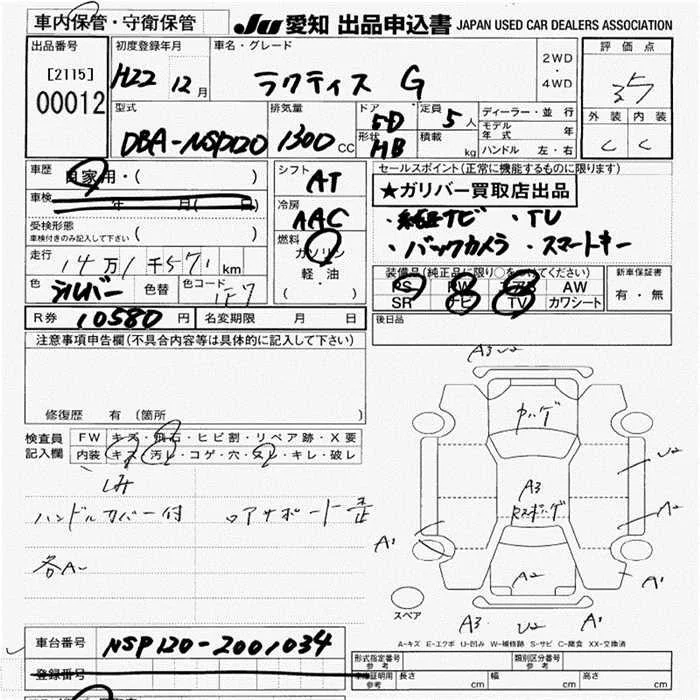 車内保管・守衛保管
JU 愛知 出品申込書 JAPAN USED CAR DEALERS ASSOCIATION
出品番号 [2115] 00012
初度登録年月 H22 12月
車名・グレード ラクティス G
2WD・4WD
評価点 3.5
外装 C 内装 C
型式 DBA-NSP120
排気量 1300 CC
ドア 5D 形状 HB
定員 5人 積載 kg
ディーラー・並行
モデル年式 年
ハンドル 左・右
車歴 自家用・( )
車検 年 月( 日
受検形態 車検付きのみ記入して下さい ( )
走行 14万1千571km
色 シルバー 色替 色コード 1F7
シフト AT
冷房 AAC
燃料 ガソリン 軽・油 ( )
セールスポイント(正常に機能するものに限ります)
★ガリバー買取店出品
・純正ナビ ・TV
・バックカメラ ・スマートキー
装備品(純正品に限り○をつけてください)
PS PW エアB AW
SR ナビ TV カワシート
新車保証書 有・無
R券 10580円 名変期限 月 日
後日品
注意事項申告欄(不具合内容等は具体的に記入して下さい)
修復歴 有 (箇所 )
検査員記入欄
FW キズ・飛石・ヒビ割・リペア跡・X要
内装 キズ・汚レ・コゲ・穴・スレ・キレ・破レ
シミ
ハンドルカバー付 ロアサポート歪
各A〜
A3 U2
カバゲ
A3
U2
A2
A1
A2
A1
スペア
A3 U2 A1
A-キズ E-エクボ U-凹み W-補修跡 S-サビ C-腐食 XX-交換済
車台番号 NSP120-2001034
登録番号
形式指定番号 参考 類別区分番号 参考
車庫証明用 参考 長さ cm 幅 cm 高さ cm